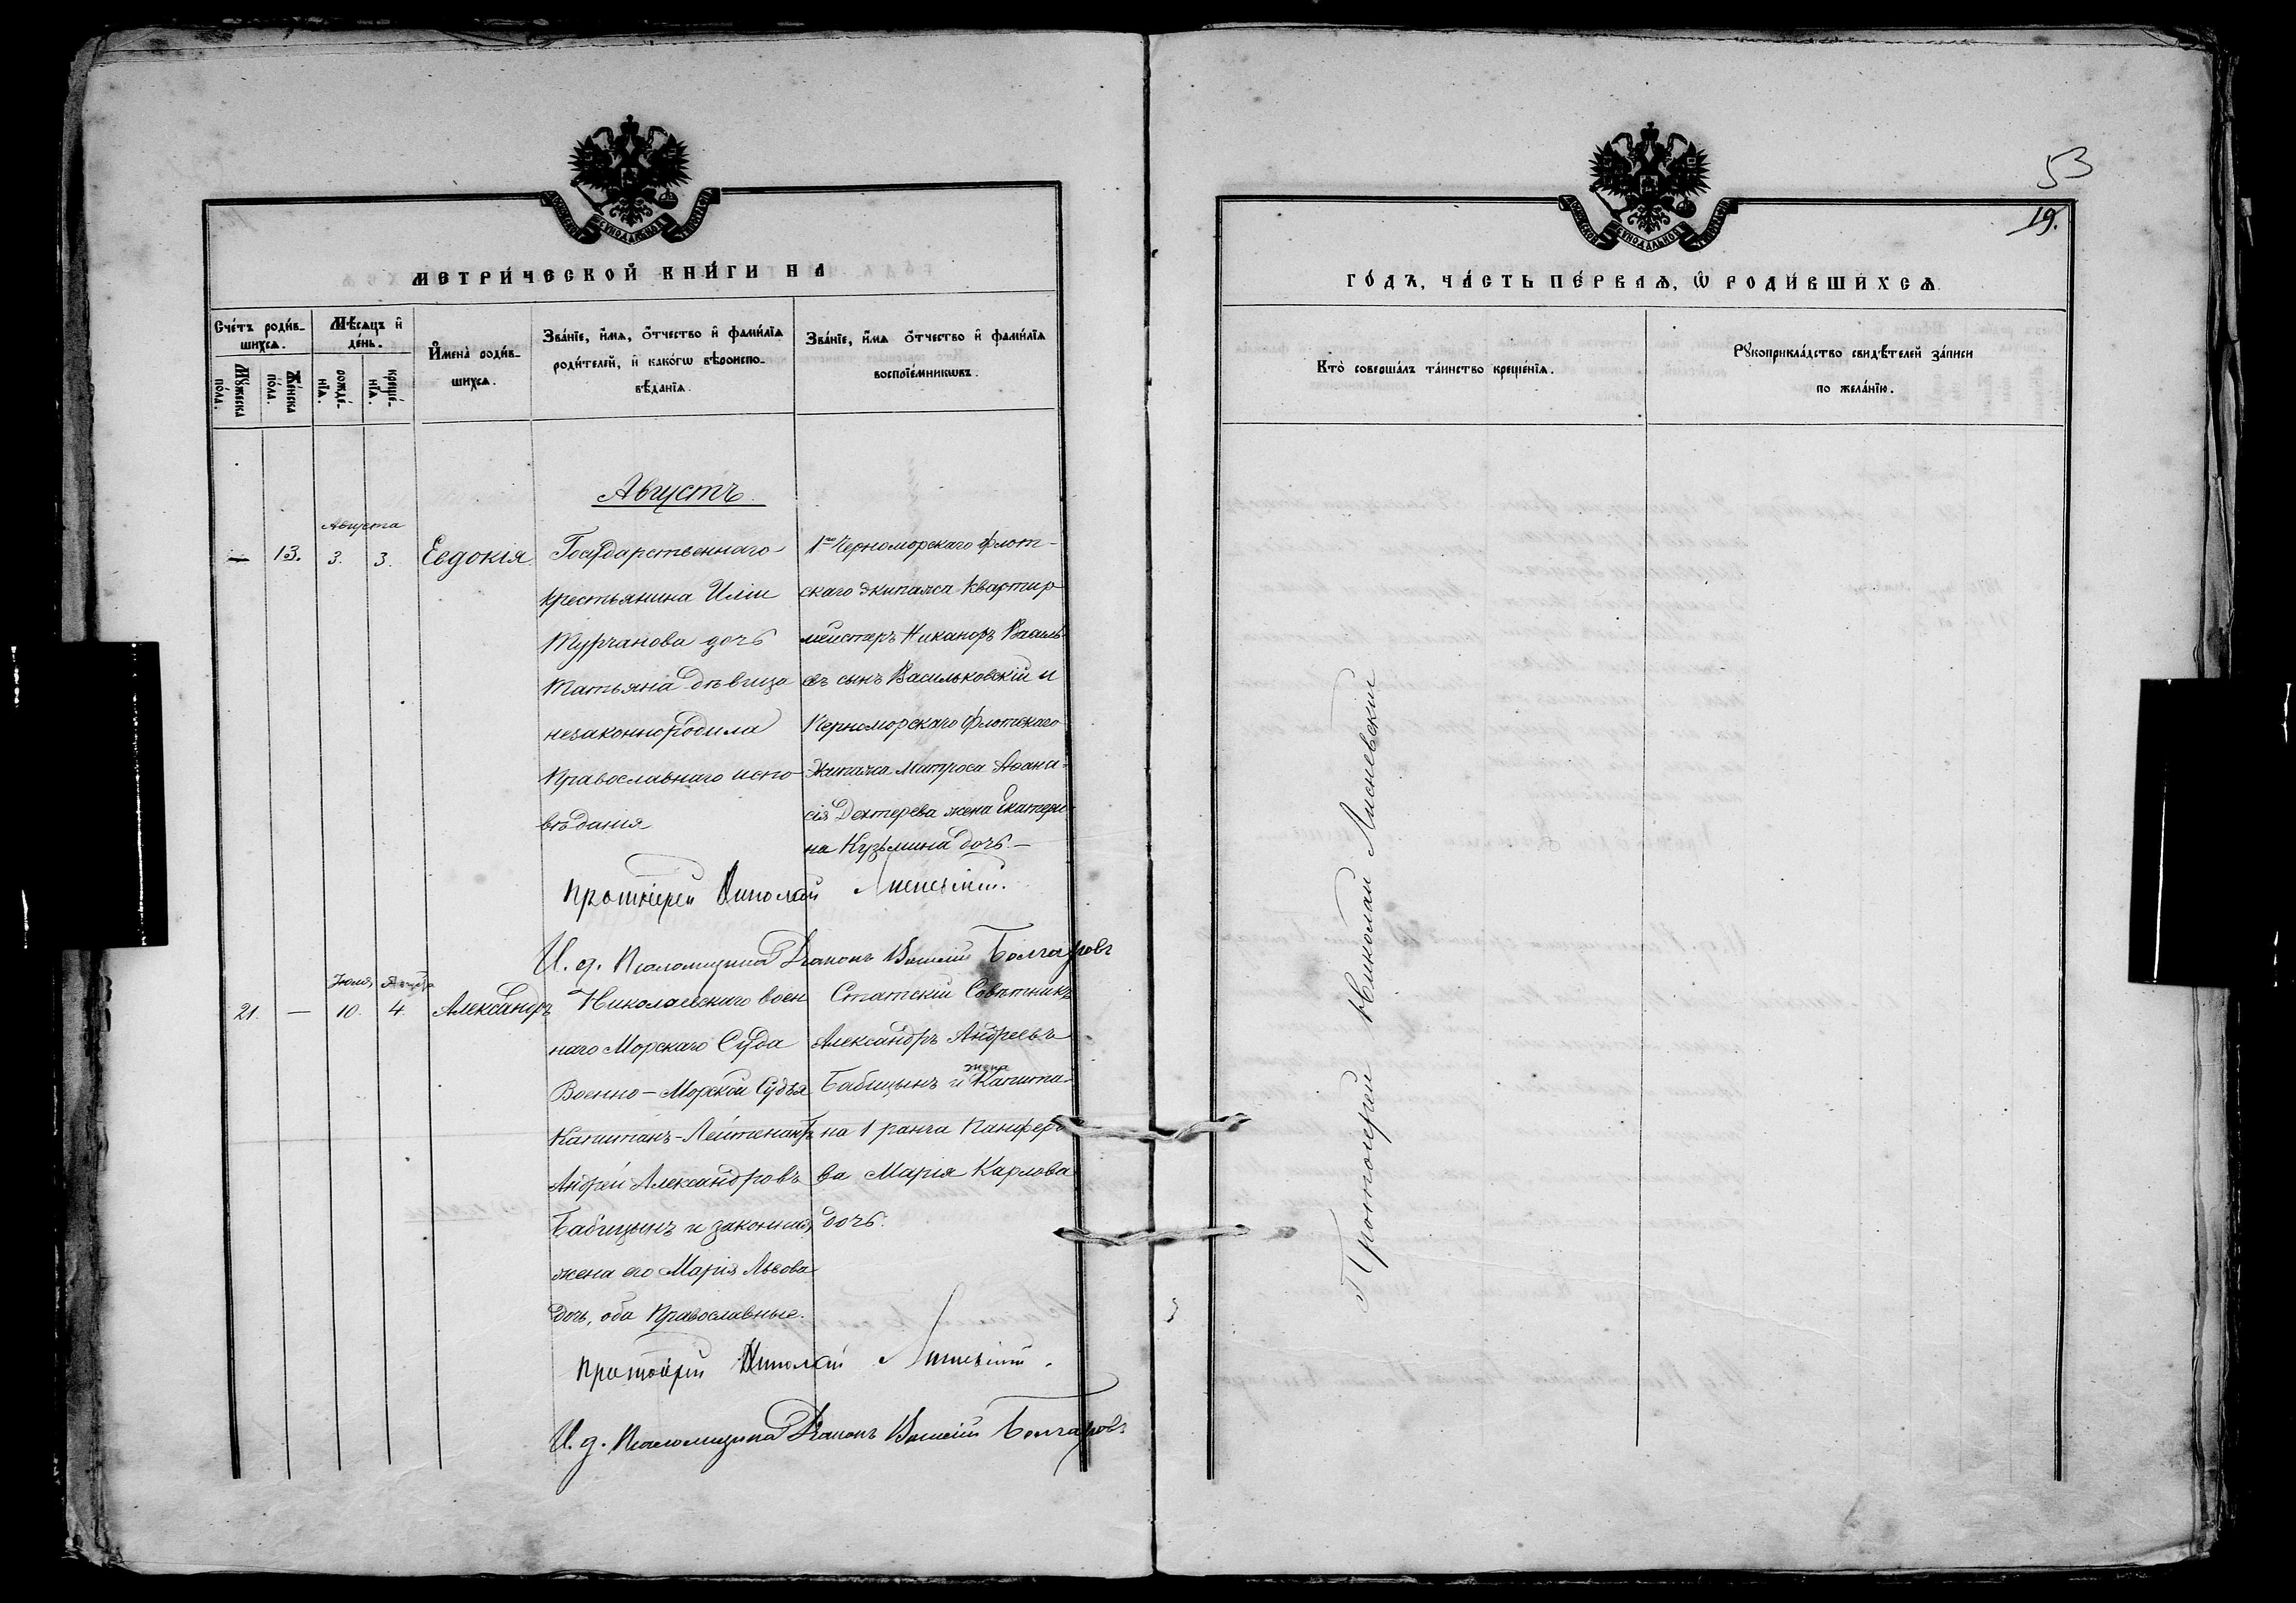 МЕТРИ́ЧЕСКОЙ КНИ́ГИ НА
Сче́тъ роди́в-
шихсѧ.
Мѣ́сѧцъ и҆
де́нь.
Му́жеска
по́ла.
Же́нска
по́ла.
рожде́-
нїѧ.
креще́-
нїѧ.
И҆мена̀ роди́в-
шихсѧ.
Зва́нїе, и҆́мѧ, ѻ҆́тчество и҆ фами́лїѧ
роди́телей, и҆ како́гѡ вѣроиспо-
вѣ́данїѧ.
Зва́нїе, и҆́мѧ ѻ҆́тчество и҆ фами́лїѧ
воспрїе́мникѡвъ.
Августъ.
Августа
— 13. 3. 3. Евдокія.
Государственнаго
крестьянина Иліи
Турчанова дочь
Татьяна дѣвица
незаконнородила
Православнаго испо-
вѣданія
1го Черноморскаго флот-
скаго экипажа Квартир
мейстеръ Никаноръ Василь-
евъ сынъ Васильковскій и
Черноморскаго флотскаго
Экипажа Матроса Афана-
сія Дехтерева жена Екатери-
на Кузьмина дочь. —
Протоіерей Николай Лисневскій.
И. д. Псаломщика Діаконъ Василій Болгаровъ
Іюля
21. — 10. 4. Александръ
Николаевскаго воен
наго Морскаго Суда
Военно-Морской Судья
Капитанъ-Лейтенантъ
Андрей Александровъ
Бабицынъ и законная
жена его Марія Львова
дочь, оба Православные.
Статскій Совѣтникъ
Александръ Андреевъ
жена
Бабицынъ и Капита-
на 1 ранга Панферо
ва Марія Карлова
дочь.
Протоіерей Николай Лисневскій.
И. д. Псаломщика Діаконъ Василій Болгаровъ
53
19.
ГО́ДЪ, ЧА́СТЬ ПЕ́РВАѦ, Ѡ҆ РОДИ́ВШИХСѦ.
Кто̀ соверша́лъ та́инство креще́нїѧ.
Рꙋкоприкла́дство свидѣ́телей за́писи
по жела́нїю.
Протоіерей Николай Лисневскій